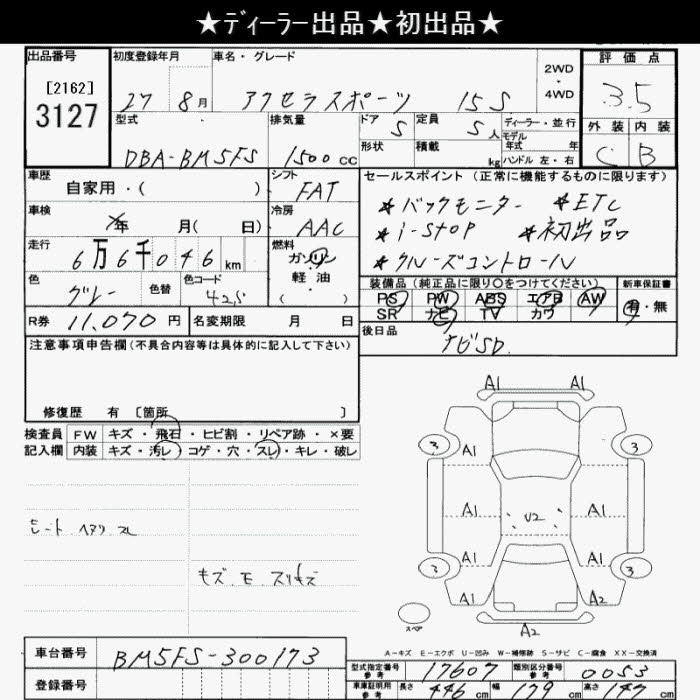 ★ディーラー出品★初出品★
出品番号 初度登録年月 車名・グレード 2WD・4WD 評価点
[2162]
3127 27 8月 アクセラスポーツ 15S 3.5
型式 排気量 ドア 5 定員 5人 ディーラー・並行 外装 内装
モデル年式 年
DBA-BM5FS 1500cc 形状 積載 kg ハンドル 左・右 C B
車歴 シフト セールスポイント(正常に機能するものに限ります)
自家用・( ) FAT
車検 年 月( 日) 冷房 AAC
*バックモニター *ETC
*i-STOP *初出品
*クルーズコントロール
走行 6万6千046km 燃料 ガソリン
軽・油
( )
色 グレー 色替 色コード 42S
装備品(純正品に限り○をつけてください) 新車保証書
PS PW ABS エアB AW 有・無
SR ナビ TV カワ
R券 11,070円 名変期限 月 日
後日品 ナビSD.
注意事項申告欄(不具合内容等は具体的に記入して下さい)
修復歴 有 〔箇所 〕
検査員 FW キズ・飛石・ヒビ割・リペア跡・×要
記入欄 内装 キズ・汚レ・コゲ・穴・スレ・キレ・破レ
A1 A1
3 3
A1 A1
A1 A1
U2
A1 A1
3 3
A1 A1
A2
スペア
シート ヘタリ スレ
キズ.モ スリキズ
A-キズ E-エクボ U-凹み W-補修跡 S-サビ C-腐食 XX-交換済
車台番号 BM5FS-300173
登録番号
型式指定番号 参考 17607 類別区分番号 参考 0053
車庫証明用 参考 長さ 446cm 幅 179cm 高さ 147cm